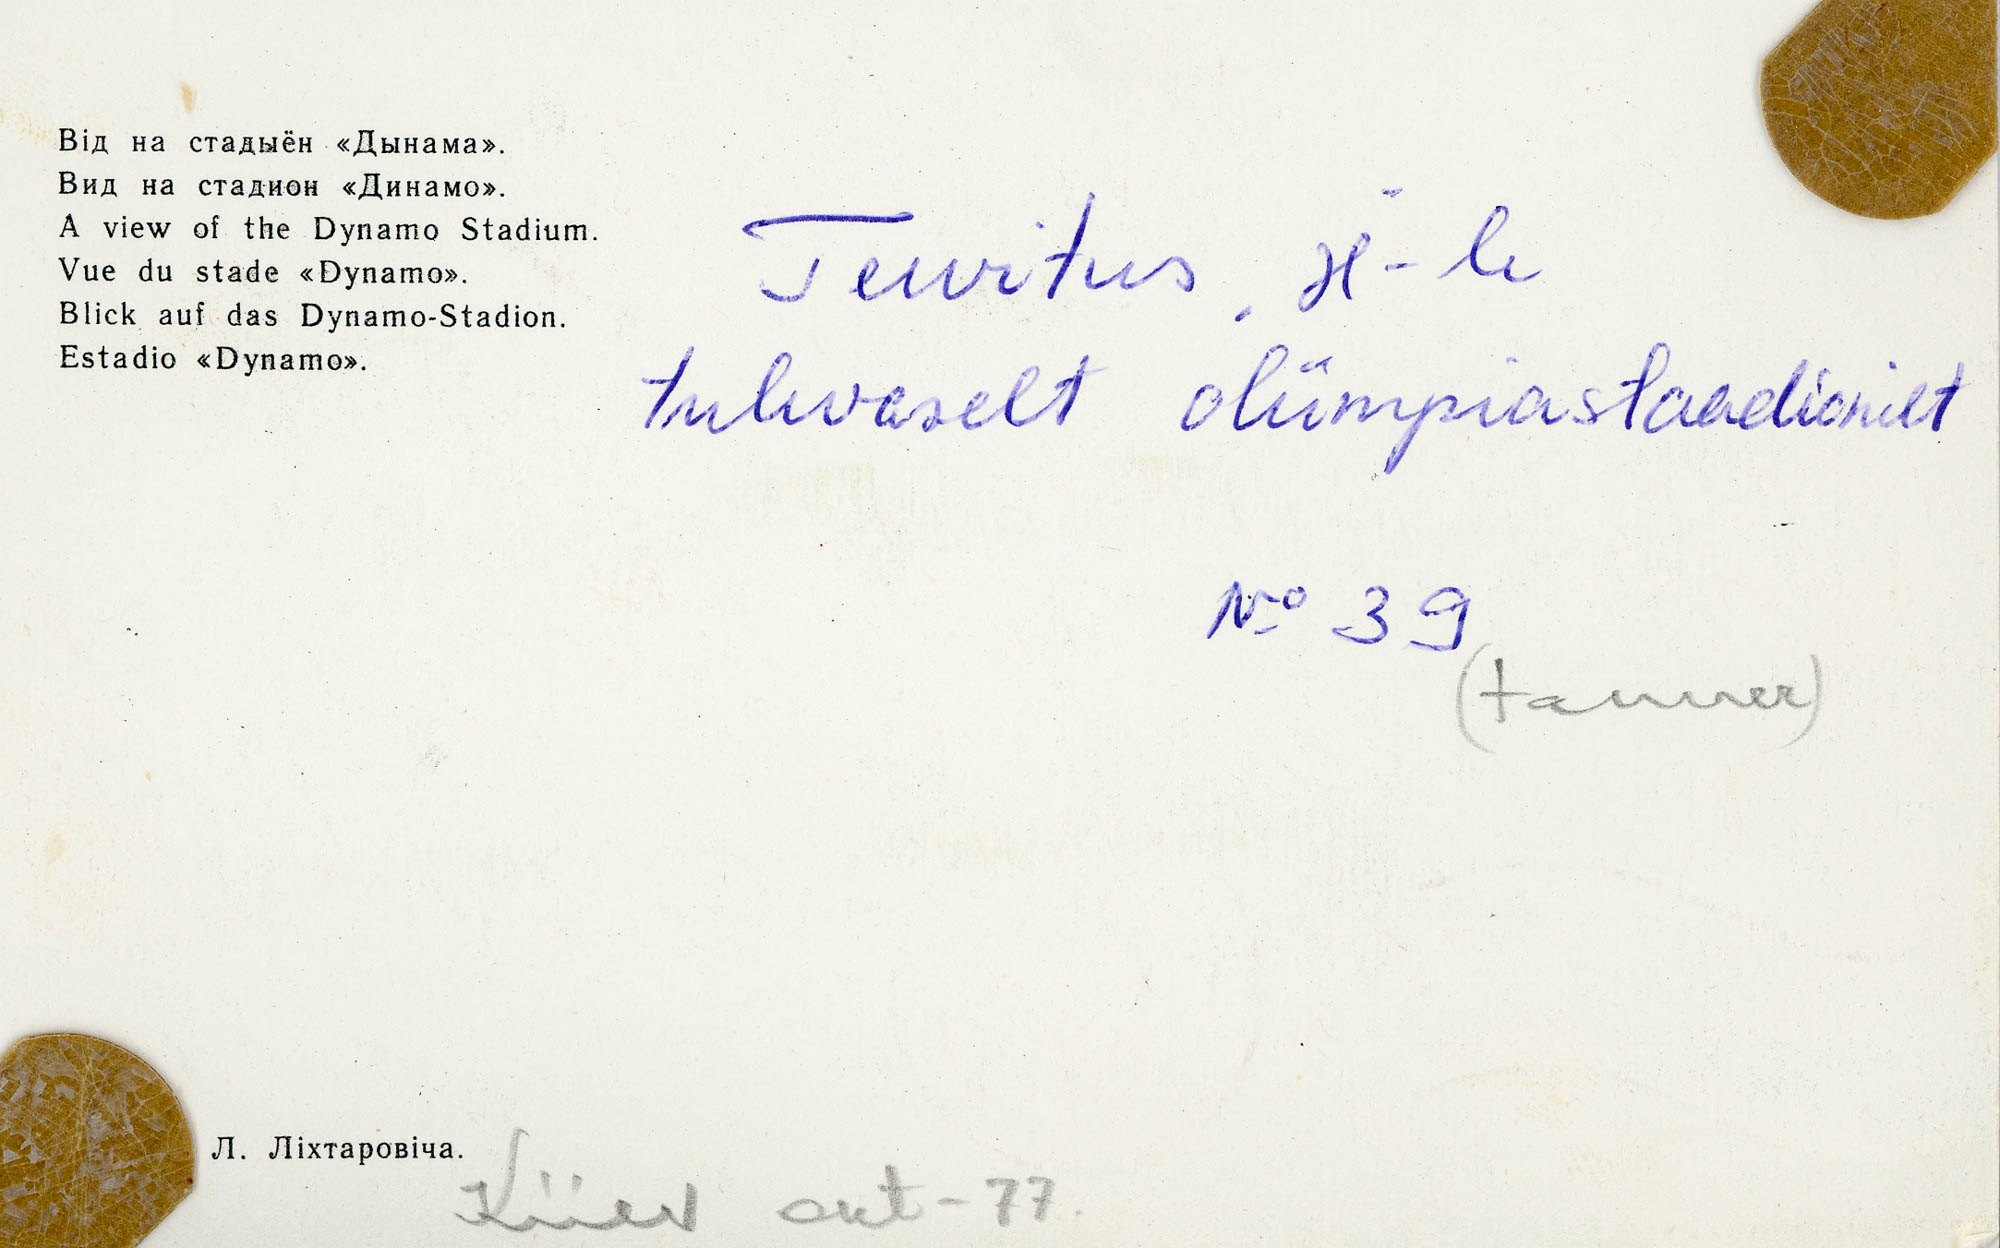 Від на стадыён «Дынама».
Вид на стадион «Динамо».
A view of the Dynamo Stadium.
Vue du stade «Dynamo».
Blick auf das Dynamo-Stadion.
Estadio «Dynamo».
Tervitus
tulevaselt olümpiastaadionilt
№ 39
(tanner)
Л. Ліхтаровіча.
Kiiev okt-77.